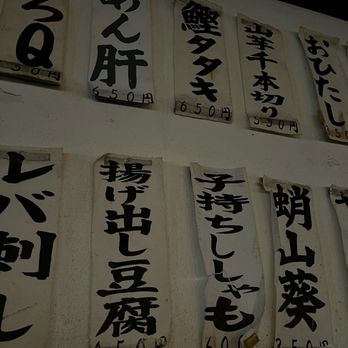 ろQ
50円
あん肝
650円
鰹タタキ
650円
山芋千本切り
550円
おひたし
レバ刺し
揚げ出し豆腐
450円
子持ちししゃも
600
蛸山葵
350円